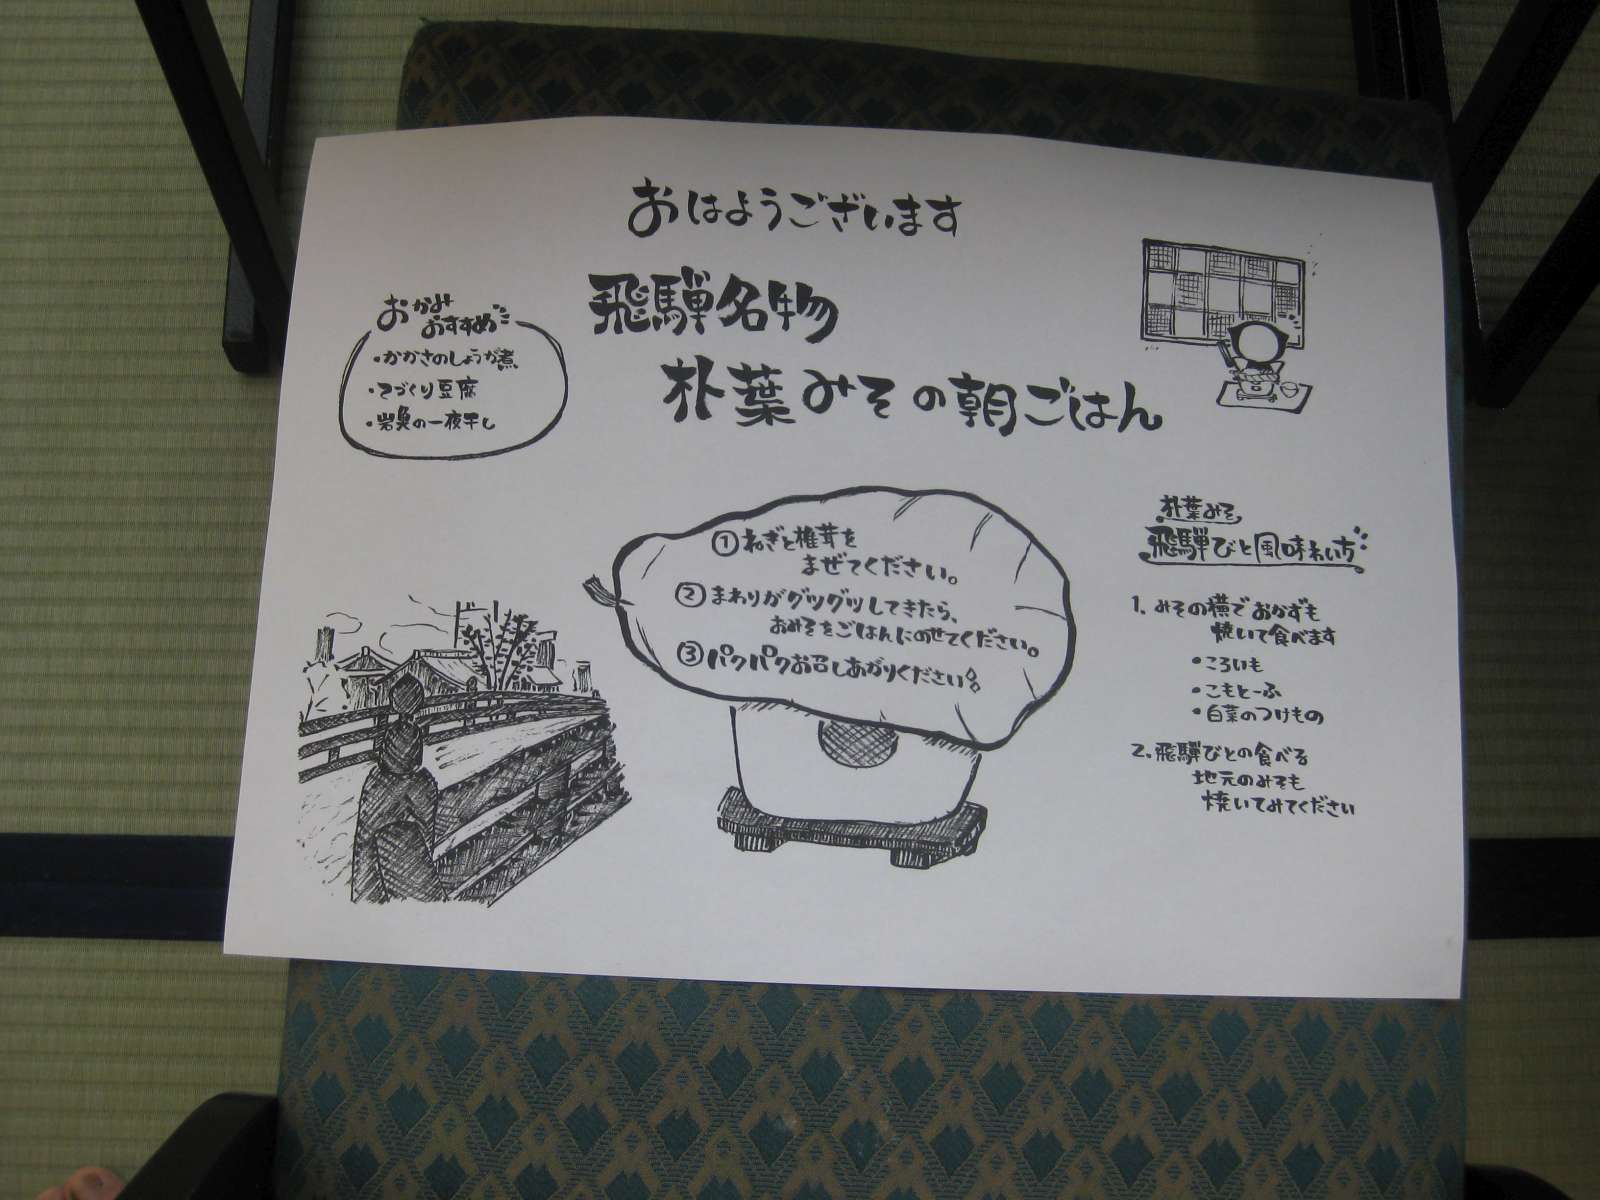 おはようございます
飛騨名物
朴葉みその朝ごはん
おかみ
おすすめ
・かかさのしょうが煮
・てづくり豆腐
・岩魚の一夜干し
①ねぎと椎茸を
まぜてください。
②まわりがグツグツしてきたら、
おみそをごはんにのせてください。
③パクパクお召しあがりください
朴葉みそ
飛騨びと風味わい方
1. みその横でおかずも
焼いて食べます
・ころいも
・こもとーふ
・白菜のつけもの
2. 飛騨びとの食べる
地元のみそも
焼いてみてください